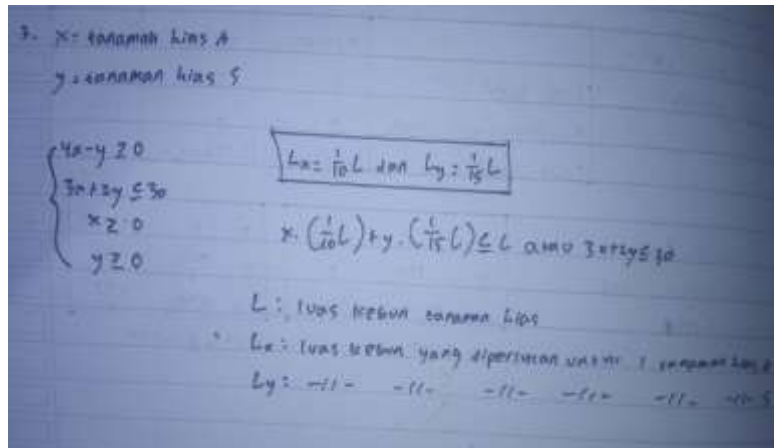 3. x = tanaman hias A
y = tanaman hias S
4x - y ≥ 0
3x + 2y ≤ 30
x ≥ 0
y ≥ 0
Lx = 1/10 L dan Ly = 1/15 L
x. (1/10 L) + y. (1/15 L) ≤ L atau 3x+2y≤30
L : luas kebun tanaman hias
Lx : luas kebun yang diperlukan untuk 1 tanaman hias
Ly : -11- -11- -11- -11- -11- -11- S